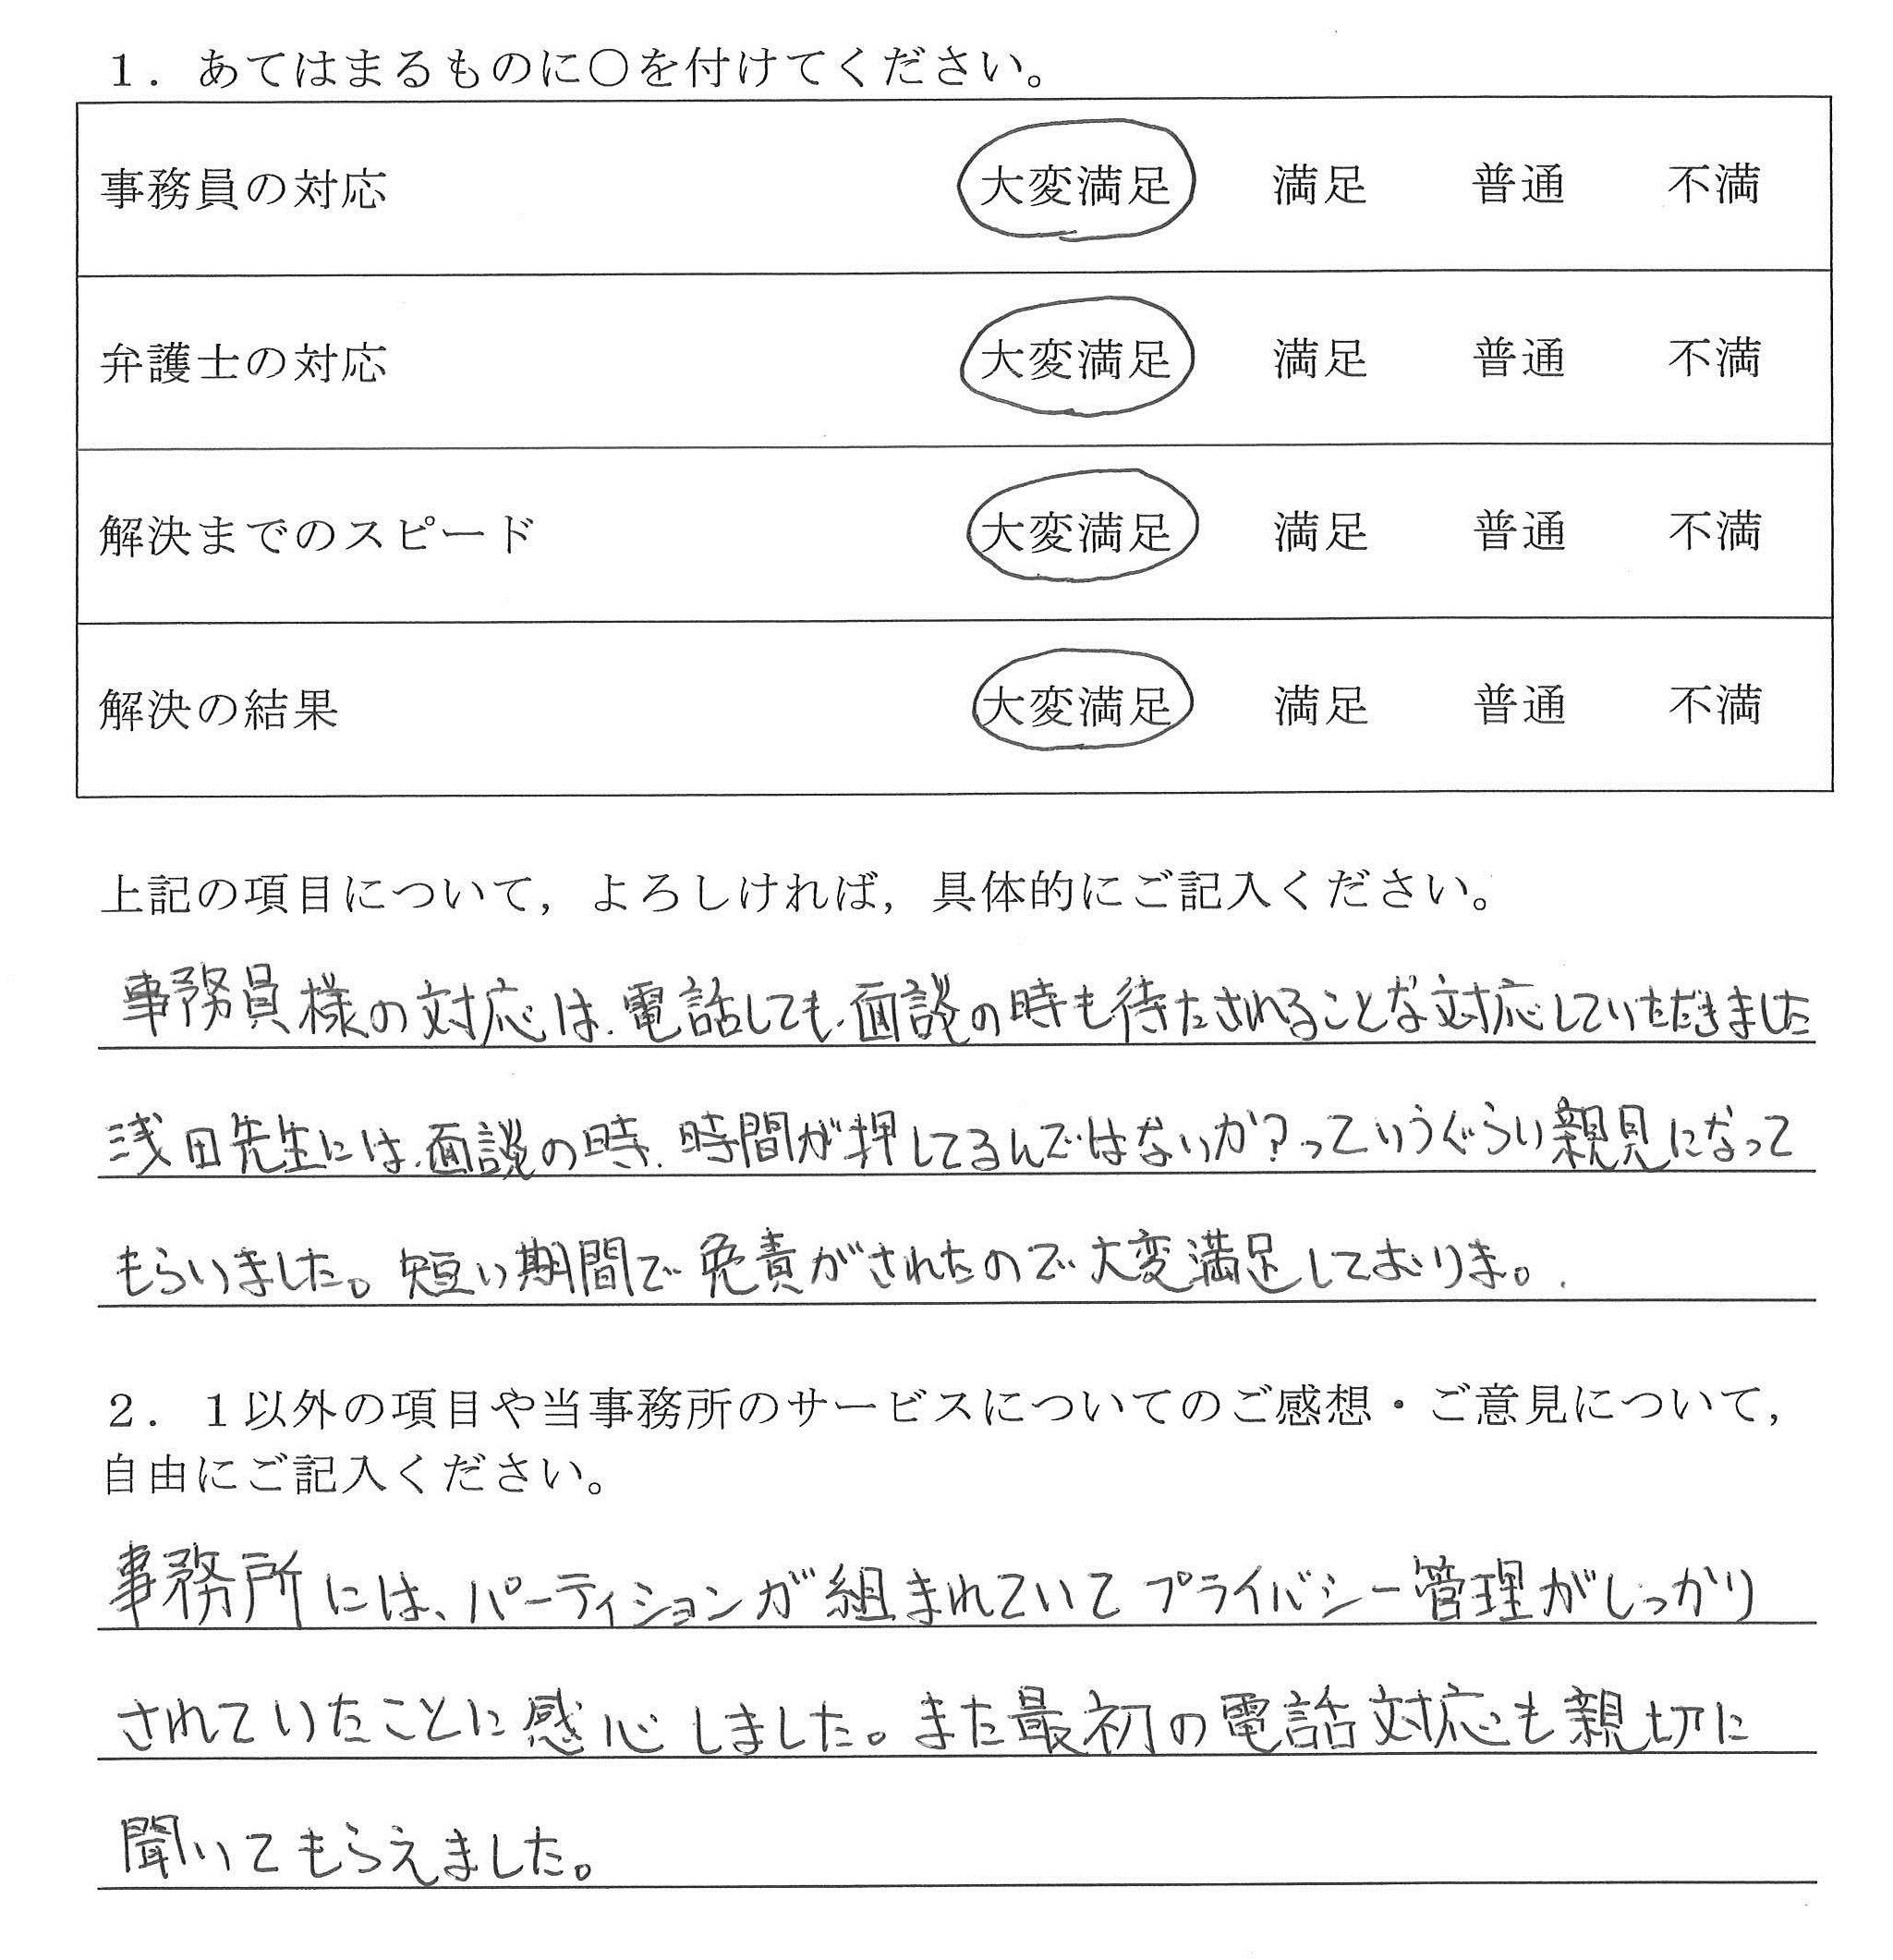 1．あてはまるものに○を付けてください。
事務員の対応 大変満足 満足 普通 不満
弁護士の対応 大変満足 満足 普通 不満
解決までのスピード 大変満足 満足 普通 不満
解決の結果 大変満足 満足 普通 不満
上記の項目について，よろしければ，具体的にご記入ください。
事務員様の対応は、電話しても、面談の時も待たされることな対応していただきました
浅田先生には、面談の時、時間が押してるんではないか？っていうぐらい親見になって
もらいました。短い期間で免責がされたので大変満足しておりま。.
2．1以外の項目や当事務所のサービスについてのご感想・ご意見について，
自由にご記入ください。
事務所には、パーティションが組まれていてプライバシー管理がしっかり
されていたことに感心しました。また最初の電話対応も親切に
聞いてもらえました。